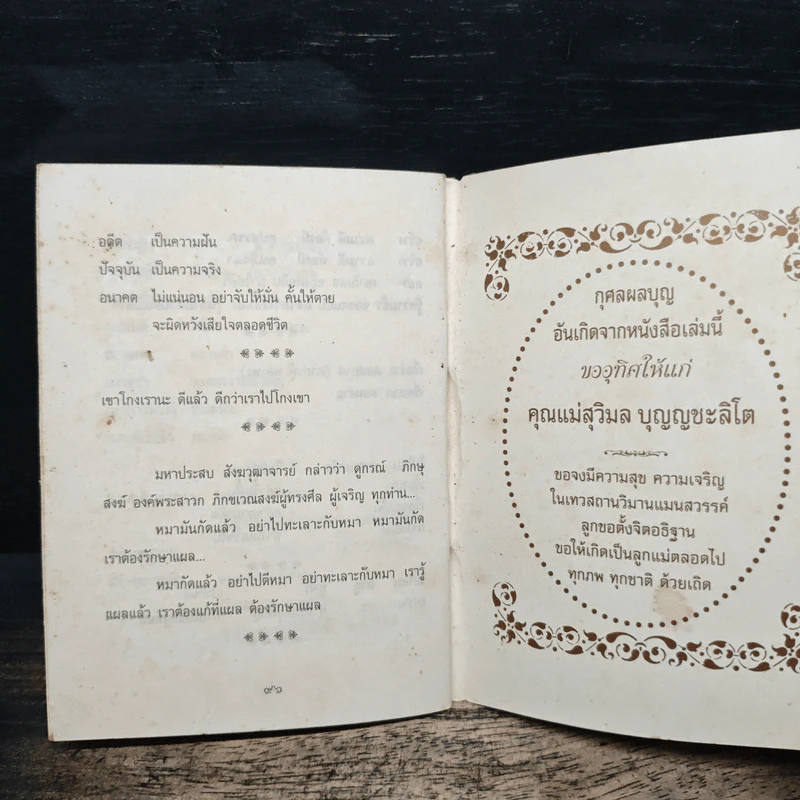 อดีต เป็นความฝัน
ปัจจุบัน เป็นความจริง
อนาคต ไม่แน่นอน อย่าจับให้มั่น คั้นให้ตาย
จะผิดหวังเสียใจตลอดชีวิต
เขาโกงเรานะ ดีแล้ว ดีกว่าเราไปโกงเขา
มหาประสบ สังฆวุฒาจารย์ กล่าวว่า ดูกรณ์ ภิกษุ
สงฆ์ องค์พระสาวก ภิกขเวณสงฆ์ผู้ทรงศีล ผู้เจริญ ทุกท่าน...
หมามันกัดแล้ว อย่าไปทะเลาะกับหมา หมามันกัด
เราต้องรักษาแผล...
หมากัดแล้ว อย่าไปตีหมา อย่าทะเลาะกับหมา เรารู้
แผลแล้ว เราต้องแก้ที่แผล ต้องรักษาแผล
๙๖
กุศลผลบุญ
อันเกิดจากหนังสือเล่มนี้
ขออุทิศให้แก่
คุณแม่สุวิมล บุญญชะลิโต
ขอจงมีความสุข ความเจริญ
ในเทวสถานวิมานแมนสวรรค์
ลูกขอตั้งจิตอธิฐาน
ขอให้เกิดเป็นลูกแม่ตลอดไป
ทุกภพ ทุกชาติ ด้วยเถิด